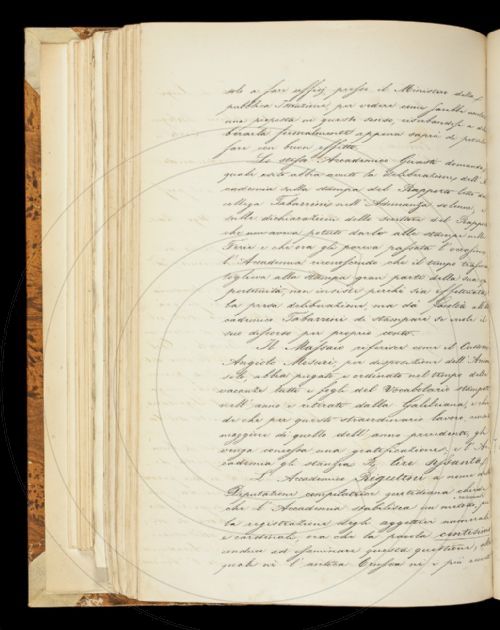 solo a fare uffizj presso il Ministero della
pubblica Istruzione per vedere come sarebbe
una proposta in questo senso, riserbandosi a
berarla formalmente appena saprà di poterlo
fare con buon effetto.
Lo stesso Accademico Guasti domanda
quale esito abbia avuto la deliberazione dell'
cademia sulla stampa del Rapporto letto da
collega Tabarrini nell'Adunanza solenne, e
sulla dichiarazione dello scrittore del Rapporto
che non aveva potuto darlo alle stampe nelle
Ferie e che ora gli pareva passata l'occasione
l'Accademia riconoscendo che il tempo
toglieva alla stampa gran parte della sua
portunità, non insiste perchè sia effettuata
la presa deliberazione, ma dà facoltà all'
cademico Tabarrini di stampare se vuole il
suo discorso per proprio conto.
Il Massaio riferisce come il Custode
Angiolo per disposizione dell'
abbia piegato e ordinato nel tempo delle
vacanze tutti i fogli del Vocabolario stampati
nell'anno e ritirati dalla Galileiana, e
de che per questo straordinario lavoro,
maggiore di quello dell'anno precedente, gli
venga concessa una gratificazione; e l'
cademia gli stanzia lire sessanta.
L'Accademico Rigutini a nome della
Deputazione compilatrice quotidiana chiede
che l'Accademia stabilisca un metodo per
la registrazione degli aggettivi numerali
e cardinali, ora che la parola centesimo
conduce ad esaminare questa questione,
quale nè l'antica Crusca nè i più recenti